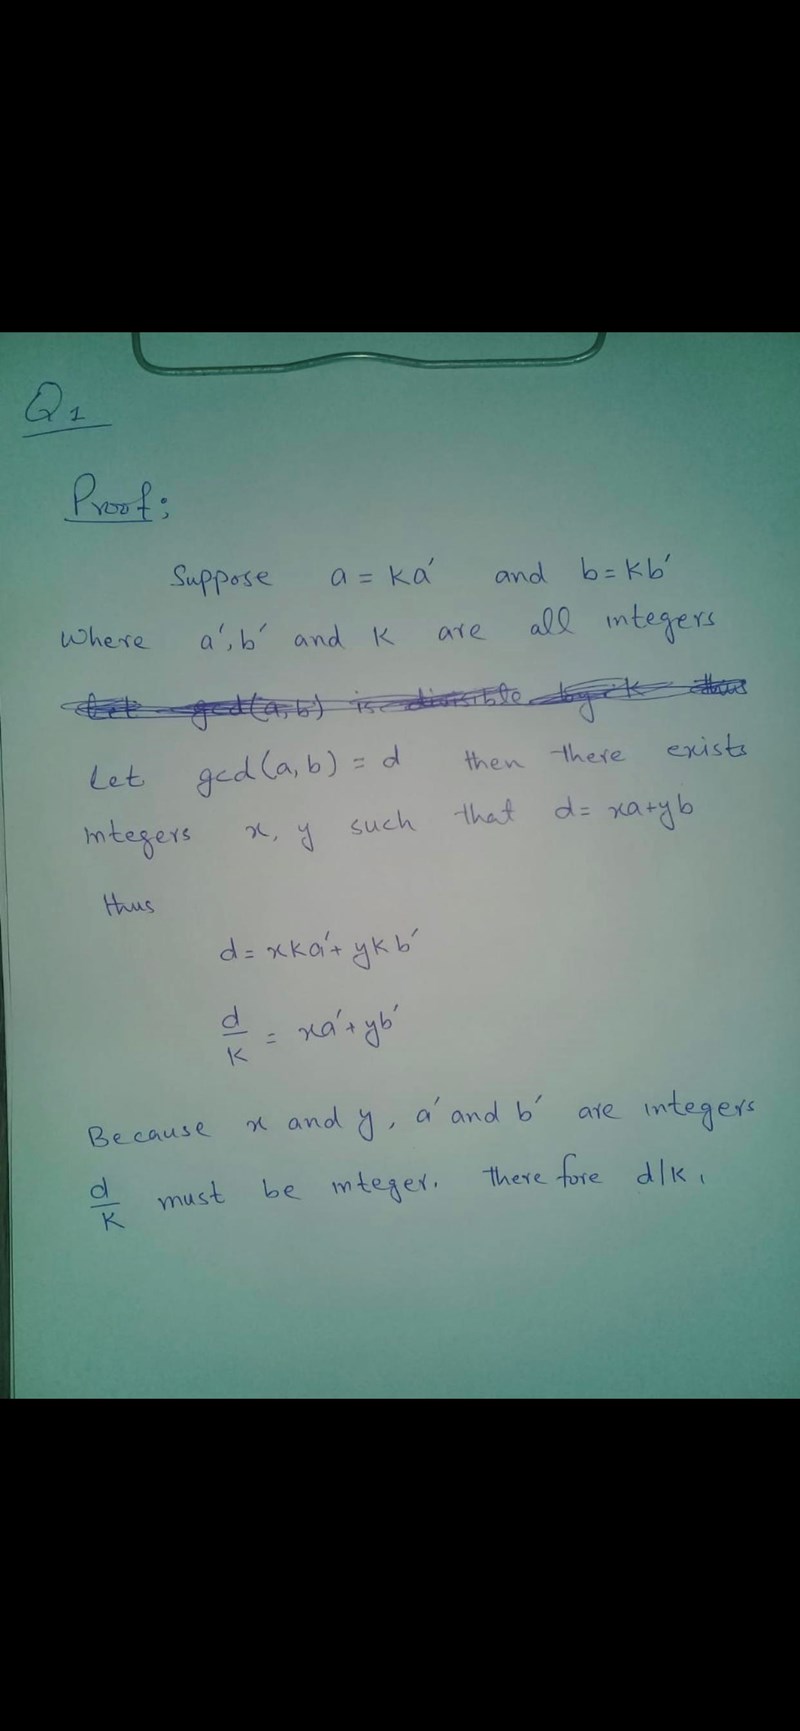 Q1
Proof:
Suppose a = ka′ and b = kb′
Where a′, b′ and k are all integers
Let gcd(a,b) is divisible by k thus
Let gcd(a,b) = d then there exists
integers x, y such that d = xa+yb
thus
d = xka′ + ykb′
d/k = xa′ + yb′
Because x and y, a′ and b′ are integers
d/k must be integer. There fore d/k.